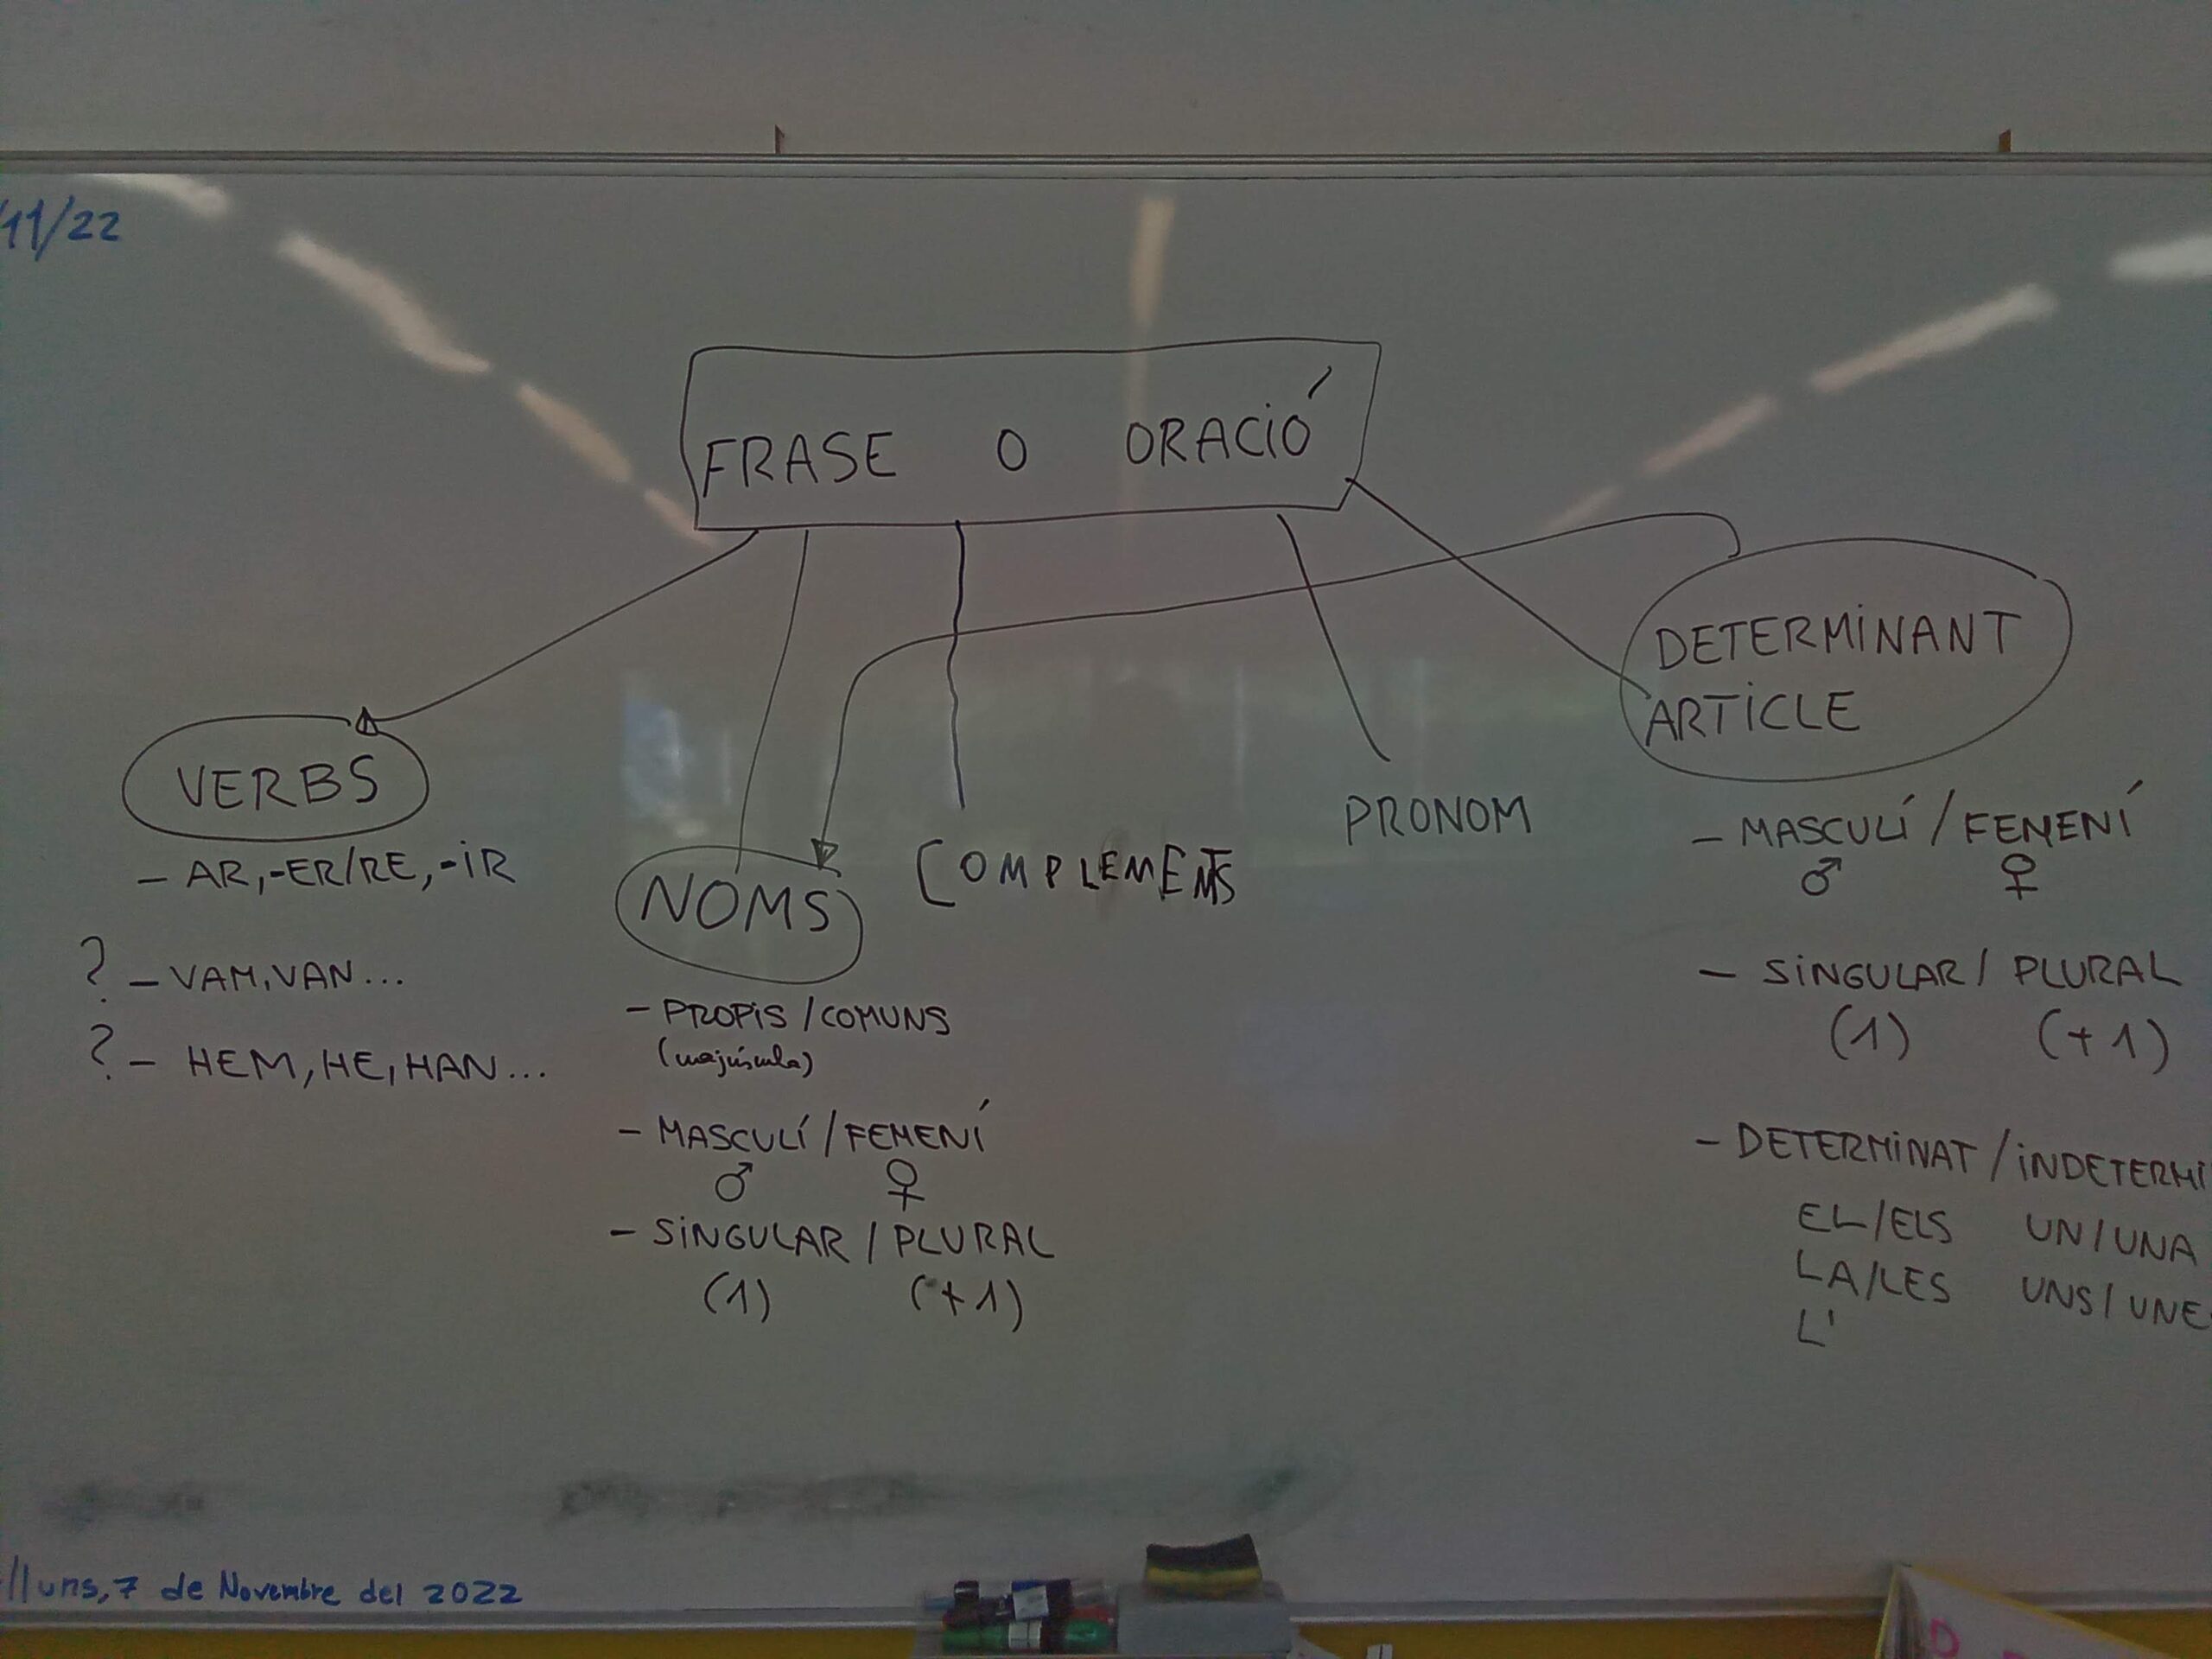 /11/22
FRASE O ORACIÓ
VERBS
- AR,-ER/RE,-IR
? - VAM, VAN...
? - HEM, HE, HAN...
NOMS
- PROPIS / COMUNS
(majúscula)
- MASCULÍ / FEMENÍ
♂ ♀
- SINGULAR / PLURAL
(1) (+1)
COMPLEMENTS
PRONOM
DETERMINANT
ARTICLE
- MASCULÍ / FEMENÍ
♂ ♀
- SINGULAR / PLURAL
(1) (+1)
- DETERMINAT / INDETERMI
EL/ELS UN/UNA
LA/LES UNS/UNE
L'
lluns, 7 de Novembre del 2022